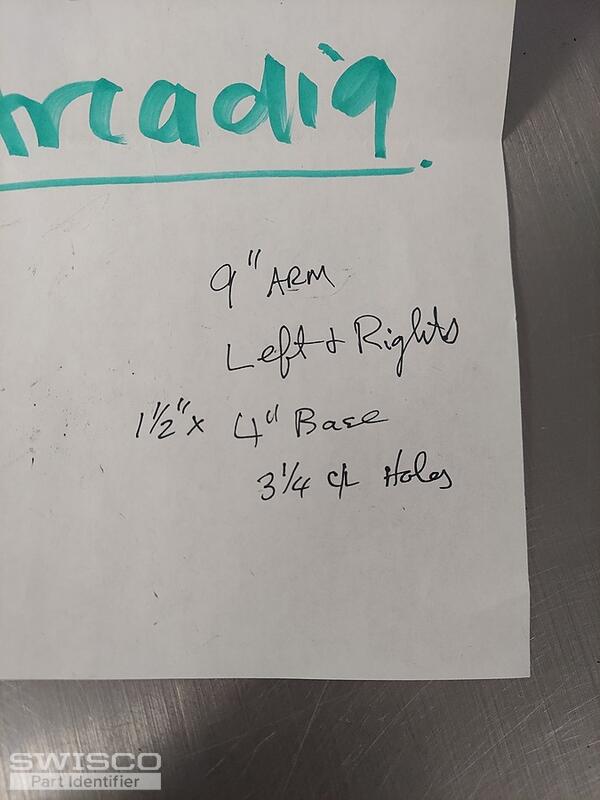 Arcadia.
9" ARM
Left & Rights
1 1/2" x 4" Base
3 1/4 C/L Holes
SWISCO
Part Identifier